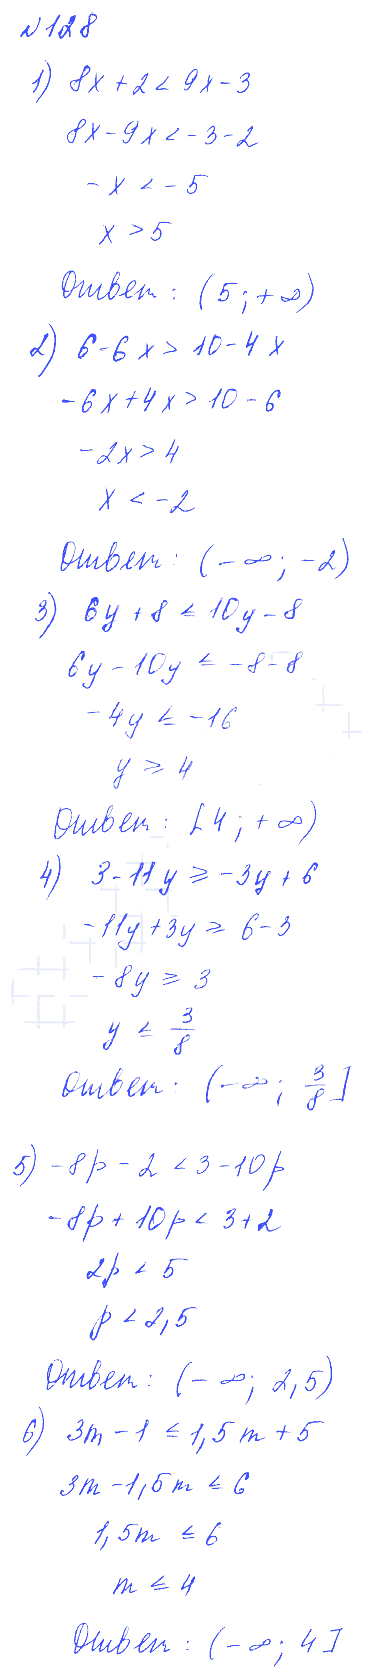 №128
1) 8x + 2 < 9x - 3
8x - 9x < -3 - 2
-x < -5
x > 5
Ответ: (5; +∞)
2) 6 - 6x > 10 - 4x
-6x + 4x > 10 - 6
-2x > 4
x < -2
Ответ: (-∞; -2)
3) 6y + 8 ≤ 10y - 8
6y - 10y ≤ -8 - 8
-4y ≤ -16
y ≥ 4
Ответ: [4; +∞)
4) 3 - 11y ≥ -3y + 6
-11y + 3y ≥ 6 - 3
-8y ≥ 3
y ≤ 3/8
Ответ: (-∞; 3/8]
5) -8p - 2 < 3 - 10p
-8p + 10p < 3 + 2
2p < 5
p < 2,5
Ответ: (-∞; 2,5)
6) 3m - 1 ≤ 1,5m + 5
3m - 1,5m ≤ 6
1,5m ≤ 6
m ≤ 4
Ответ: (-∞; 4]